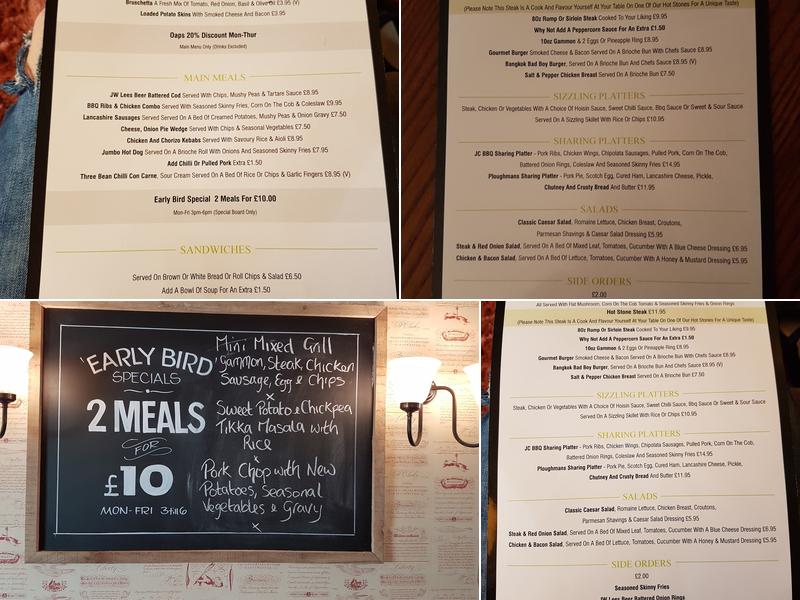 Bruschetta A Fresh Mix Of Tomato, Red Onion, Basil & Olive Oil £3.95 (V)
Loaded Potato Skins With Smoked Cheese And Bacon £3.95
Oaps 20% Discount Mon-Thur
Main Menu Only (Drinks Excluded)
MAIN MEALS
JW Lees Beer Battered Cod Served With Chips, Mushy Peas & Tartare Sauce £8.95
BBQ Ribs & Chicken Combo Served With Seasoned Skinny Fries, Corn On The Cob & Coleslaw £9.95
Lancashire Sausages Served On A Bed Of Creamed Potatoes, Mushy Peas & Onion Gravy £7.50
Cheese, Onion Pie Wedge Served With Chips & Seasonal Vegetables £7.50
Chicken And Chorizo Kebabs Served With Savoury Rice & Aioli £8.95
Jumbo Hot Dog Served On A Brioche Roll With Onions And Seasoned Skinny Fries £7.95
Add Chilli Or Pulled Pork Extra £1.50
Three Bean Chilli Con Carne, Sour Cream Served On A Bed Of Rice Or Chips & Garlic Fingers £8.95 (V)
Early Bird Special 2 Meals For £10.00
Mon-Fri 3pm-6pm (Special Board Only)
SANDWICHES
Served On Brown Or White Bread Or Roll Chips & Salad £6.50
Add A Bowl Of Soup For An Extra £1.50
(Please Note This Steak Is A Cook And Flavour Yourself At Your Table On One Of Our Hot Stones For A Unique Taste)
8Oz Rump Or Sirloin Steak Cooked To Your Liking £9.95
Why Not Add A Peppercorn Sauce For An Extra £1.50
10oz Gammon & 2 Eggs Or Pineapple Ring £8.95
Gourmet Burger Smoked Cheese & Bacon Served On A Brioche Bun With Chefs Sauce £8.95
Bangkok Bad Boy Burger, Served On A Brioche Bun And Chefs Sauce £8.95 (V)
Salt & Pepper Chicken Breast Served On A Brioche Bun £7.50
SIZZLING PLATTERS
Steak, Chicken Or Vegetables With A Choice Of Hoisin Sauce, Sweet Chilli Sauce, Bbq Sauce Or Sweet & Sour Sauce
Served On A Sizzling Skillet With Rice Or Chips £10.95
SHARING PLATTERS
JC BBQ Sharing Platter - Pork Ribs, Chicken Wings, Chipolata Sausages, Pulled Pork, Corn On The Cob,
Battered Onion Rings, Coleslaw And Seasoned Skinny Fries £14.95
Ploughmans Sharing Platter - Pork Pie, Scotch Egg, Cured Ham, Lancashire Cheese, Pickle,
Chutney And Crusty Bread And Butter £11.95
SALADS
Classic Caesar Salad, Romaine Lettuce, Chicken Breast, Croutons,
Parmesan Shavings & Caesar Salad Dressing £5.95
Steak & Red Onion Salad, Served On A Bed Of Mixed Leaf, Tomatoes, Cucumber With A Blue Cheese Dressing £6.95
Chicken & Bacon Salad, Served On A Bed Of Lettuce, Tomatoes, Cucumber With A Honey & Mustard Dressing £5.95
SIDE ORDERS
£2.00
'EARLY BIRD'
SPECIALS
2 MEALS
FOR
£10
MON-FRI 3till6
Mini Mixed Grill
Gammon, Steak, Chicken
Sausage, Egg & Chips
x
Sweet Potato & Chickpea
Tikka Masala with
Rice
x
Pork Chop with New
Potatoes, Seasonal
Vegetables & Gravy
x
All Served With Flat Mushroom, Corn On The Cob Tomato & Seasoned Skinny Fries & Onion Rings
Hot Stone Steak £11.95
(Please Note This Steak Is A Cook And Flavour Yourself At Your Table On One Of Our Hot Stones For A Unique Taste)
8Oz Rump Or Sirloin Steak Cooked To Your Liking £9.95
Why Not Add A Peppercorn Sauce For An Extra £1.50
10oz Gammon & 2 Eggs Or Pineapple Ring £8.95
Gourmet Burger Smoked Cheese & Bacon Served On A Brioche Bun With Chefs Sauce £8.95
Bangkok Bad Boy Burger, Served On A Brioche Bun And Chefs Sauce £8.95 (V)
Salt & Pepper Chicken Breast Served On A Brioche Bun £7.50
SIZZLING PLATTERS
Steak, Chicken Or Vegetables With A Choice Of Hoisin Sauce, Sweet Chilli Sauce, Bbq Sauce Or Sweet & Sour Sauce
Served On A Sizzling Skillet With Rice Or Chips £10.95
SHARING PLATTERS
JC BBQ Sharing Platter - Pork Ribs, Chicken Wings, Chipolata Sausages, Pulled Pork, Corn On The Cob,
Battered Onion Rings, Coleslaw And Seasoned Skinny Fries £14.95
Ploughmans Sharing Platter - Pork Pie, Scotch Egg, Cured Ham, Lancashire Cheese, Pickle,
Chutney And Crusty Bread And Butter £11.95
SALADS
Classic Caesar Salad, Romaine Lettuce, Chicken Breast, Croutons,
Parmesan Shavings & Caesar Salad Dressing £5.95
Steak & Red Onion Salad, Served On A Bed Of Mixed Leaf, Tomatoes, Cucumber With A Blue Cheese Dressing £6.95
Chicken & Bacon Salad, Served On A Bed Of Lettuce, Tomatoes, Cucumber With A Honey & Mustard Dressing £5.95
SIDE ORDERS
£2.00
Seasoned Skinny Fries
JW Lees Beer Battered Onion Rings